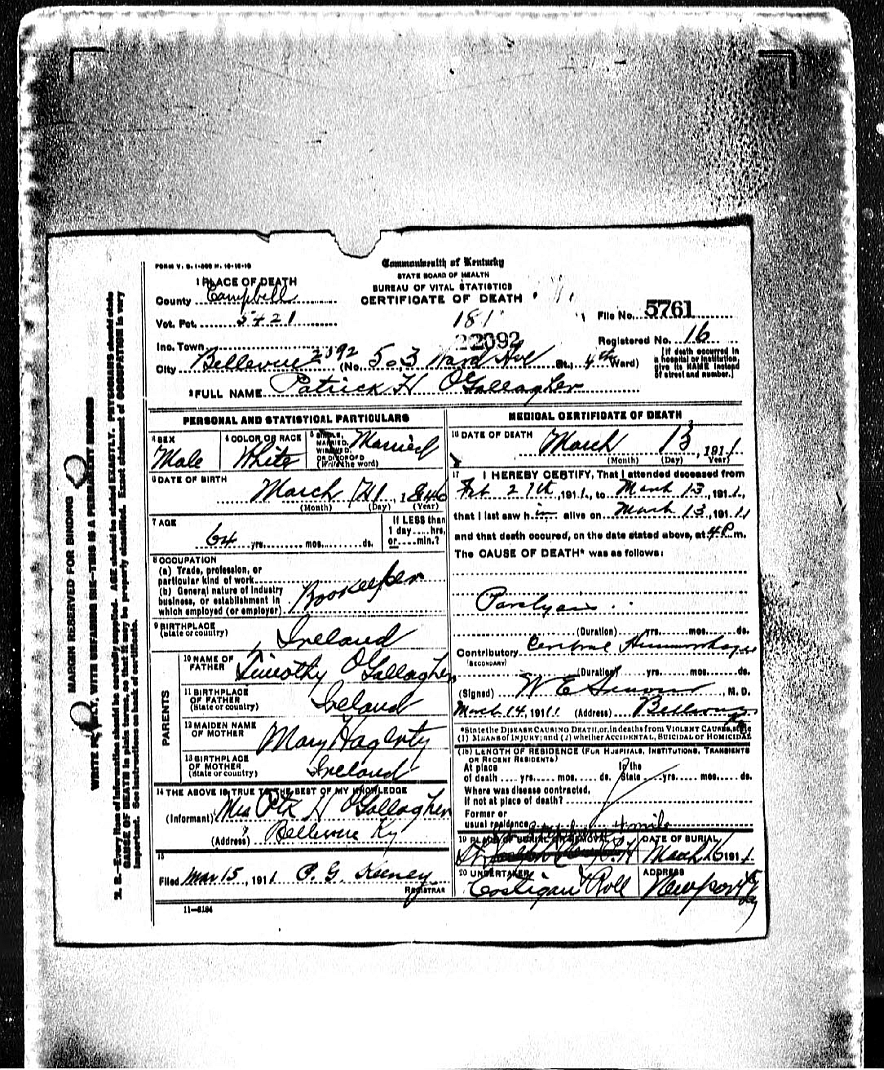 FORM V. S. 1-
Commonwealth of Kentucky
STATE BOARD OF HEALTH
BUREAU OF VITAL STATISTICS
CERTIFICATE OF DEATH
1 PLACE OF DEATH
County Campbell
Vot. Pct. 5421
181
File No. 5761
22092
Registered No. 16
Inc. Town
City Bellevue 2392 (No. 503 Ward Ave St.; 4th Ward)
[If death occurred in a hospital or institution, give its NAME instead of street and number.]
2 FULL NAME Patrick H O'Gallagher
PERSONAL AND STATISTICAL PARTICULARS
3 SEX Male
4 COLOR OR RACE White
5 SINGLE, MARRIED, WIDOWED, OR DIVORCED (Write the word) Married
6 DATE OF BIRTH
March 21, 1846
(Month) (Day) (Year)
7 AGE
64 yrs. mos. ds.
If LESS than 1 day hrs. or min.?
8 OCCUPATION
(a) Trade, profession, or particular kind of work
(b) General nature of industry business, or establishment in which employed (or employer) Bookeeper
9 BIRTHPLACE (State or country) Ireland
PARENTS
10 NAME OF FATHER Timothy O'Gallagher
11 BIRTHPLACE OF FATHER (State or country) Ireland
12 MAIDEN NAME OF MOTHER Mary Hagerty
13 BIRTHPLACE OF MOTHER (State or country) Ireland
14 THE ABOVE IS TRUE TO THE BEST OF MY KNOWLEDGE
(Informant) Mrs Ptk H O'Gallagher
(Address) Bellevue Ky
15
Filed Mar 15, 1911 P. G. Keeney
REGISTRAR
11-5184
MEDICAL CERTIFICATE OF DEATH
16 DATE OF DEATH
March 13, 1911
(Month) (Day) (Year)
17 I HEREBY CERTIFY, That I attended deceased from
Feb 27th, 1911, to March 13, 1911,
that I last saw him alive on March 13, 1911
and that death occured, on the date stated above, at 4 P. m.
The CAUSE OF DEATH* was as follows:
Paralysis
(Duration) yrs. mos. ds.
Contributory (SECONDARY)
(Duration) yrs. mos. ds.
(Signed) W E, M. D.
March 14, 1911 (Address) Bellevue Ky
*State the DISEASE CAUSING DEATH, or, in deaths from VIOLENT CAUSES, state
(1) MEANS OF INJURY; and (2) whether ACCIDENTAL, SUICIDAL OR HOMICIDAL
(18) LENGTH OF RESIDENCE (FOR HOSPITALS, INSTITUTIONS, TRANSIENTS OR RECENT RESIDENTS)
At place of death yrs. mos. ds. In the State yrs. mos. ds.
Where was disease contracted, If not at place of death?
Former or usual residence
19 PLACE OF BURIAL OR REMOVAL
DATE OF BURIAL
March 16 1911
20 UNDERTAKER
Costigan & Roll
ADDRESS
Newport Ky
MARGIN RESERVED FOR BINDING
WRITE PLAINLY, WITH UNFADING INK—THIS IS A PERMANENT RECORD
N. B.—Every item of information should be carefully supplied. AGE should be stated EXACTLY. PHYSICIANS should state
CAUSE OF DEATH in plain terms, so that it may be properly classified. Exact statement of OCCUPATION is very
important. See instructions on back of certificate.